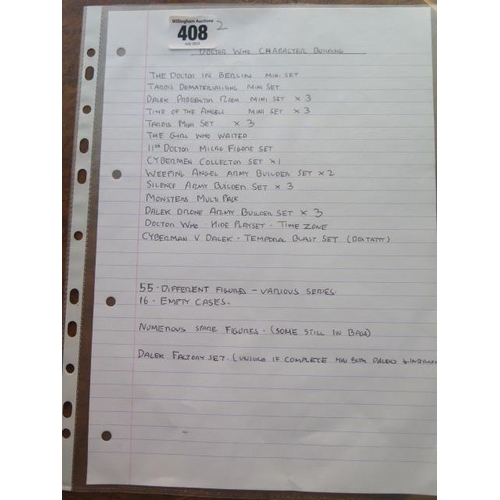 Willingham Auctions
408
2
DOCTOR WHO CHARACTER BUILDING
THE DOCTOR IN BERLIN MINI SET
TARDIS DEMATERIALISING MINI SET
DALEK PROGENITOR ROOM MINI SET x 3
TIME OF THE ANGELS MINI SET x 3
TARDIS MINI SET x 3
THE GIRL WHO WAITED
11th DOCTOR MICRO FIGURE SET
CYBERMEN COLLECTOR SET x1
WEEPING ANGEL ARMY BUILDER SET x 2
SILENCE ARMY BUILDER SET x 3
MONSTERS MULTI PACK
DALEK DRONE ARMY BUILDER SET x 3
DOCTOR WHO - HIDE PLAYSET - TIME ZONE
CYBERMAN V DALEK - TEMPORAL BLAST SET
55 - DIFFERENT FIGURES - VARIOUS SERIES.
16 - EMPTY CASES.
NUMEROUS SPARE FIGURES - (SOME STILL IN BAGS)
DALEK FACTORY SET - (UNSURE IF COMPLETE HAS BOTH DALEKS